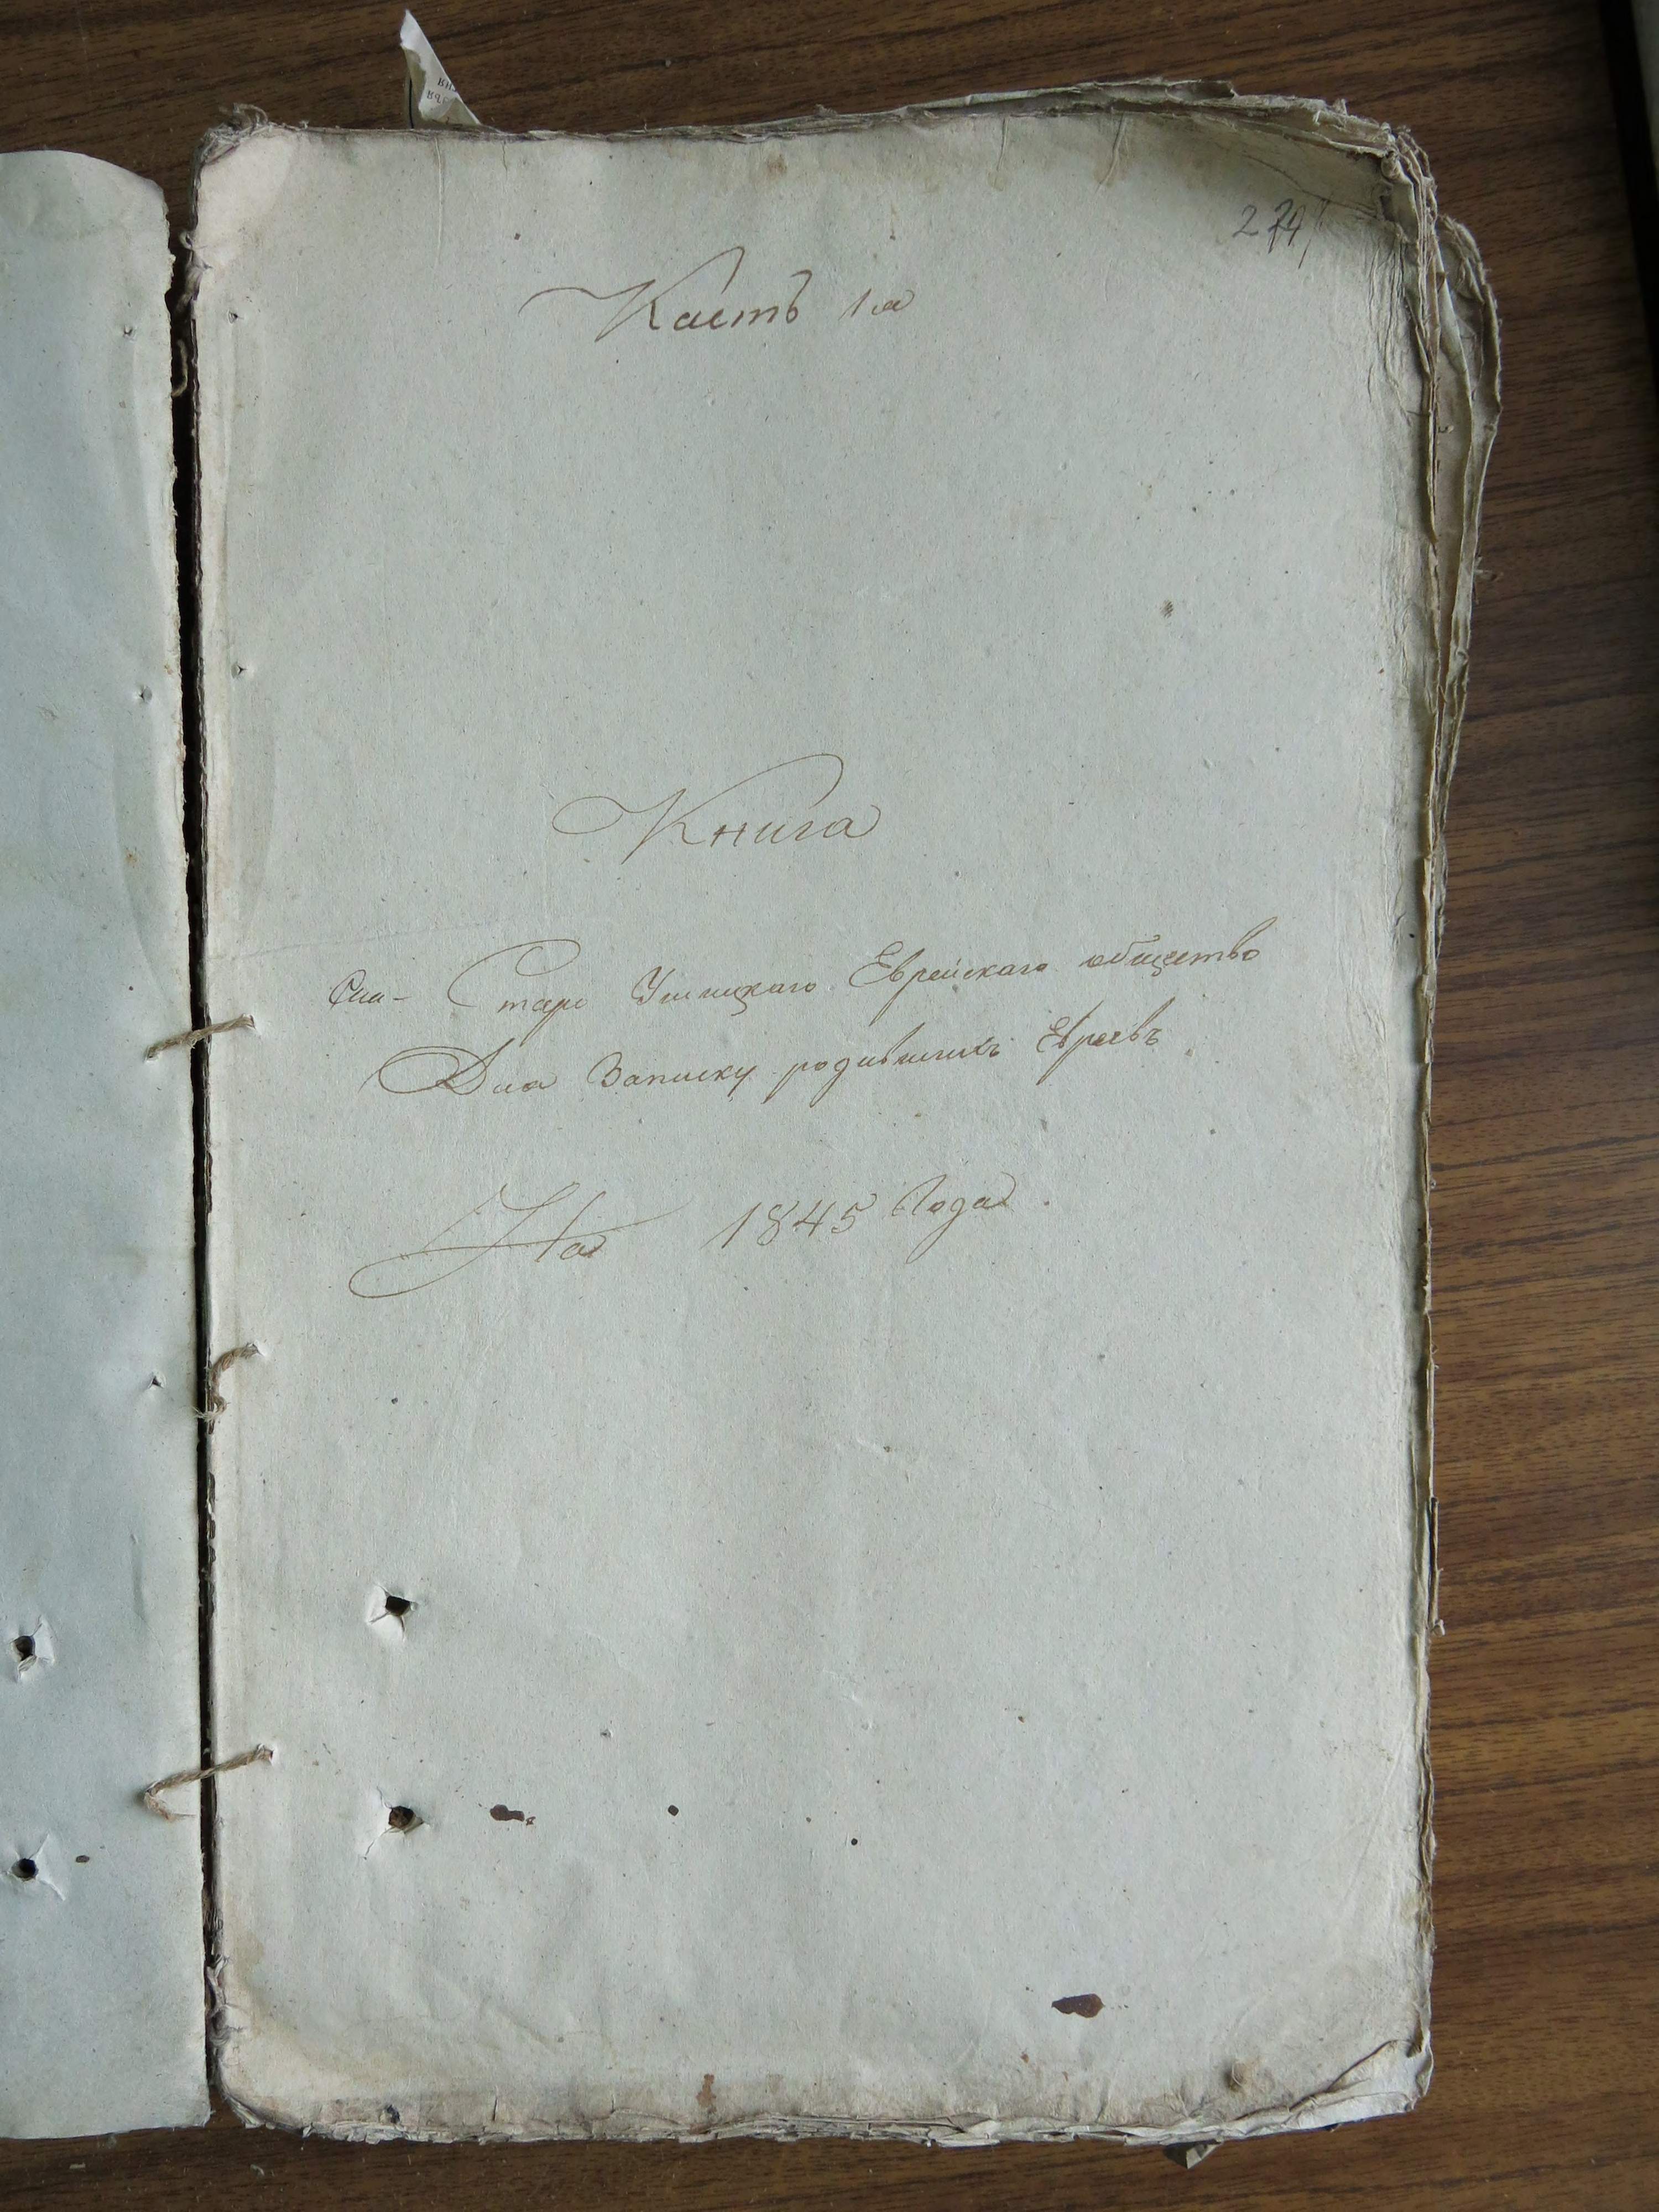 274
Кастъ 1а
Книга
Старо Ушицкаго Еврейскаго общество
Для Записку родившихъ Евреевъ
На 1845 Года